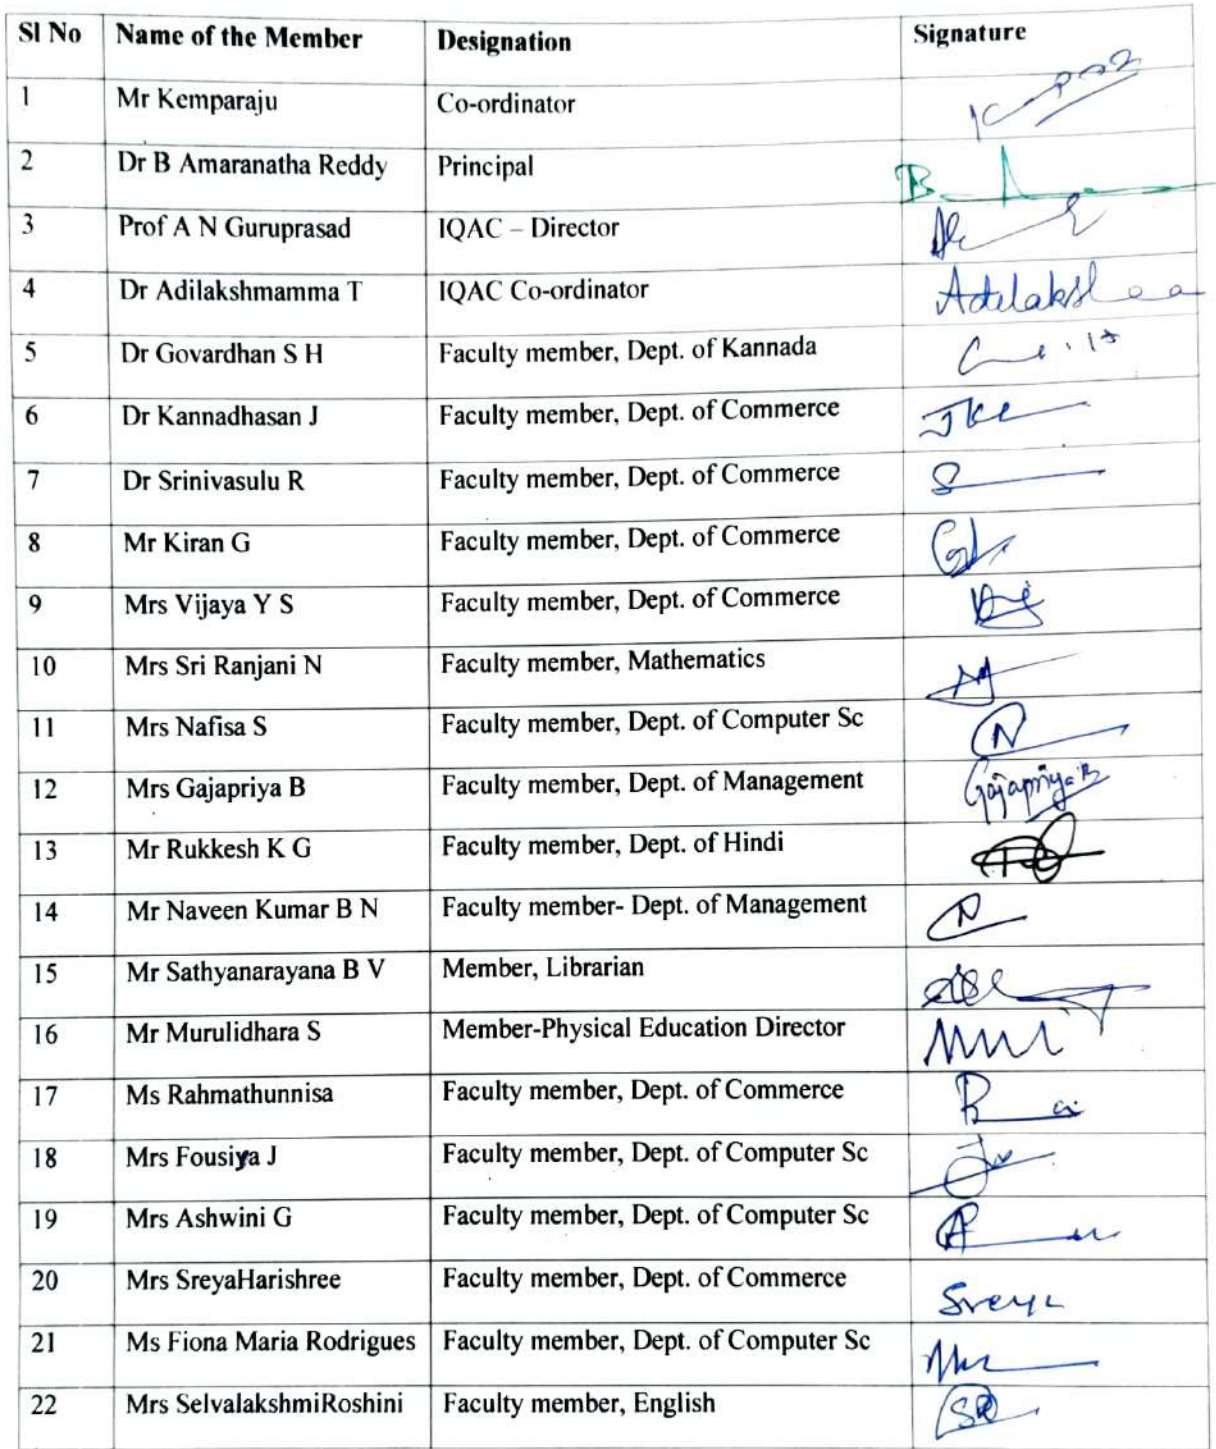 Sl No Name of the Member Designation Signature
1 Mr Kemparaju Co-ordinator
2 Dr B Amaranatha Reddy Principal
3 Prof A N Guruprasad IQAC – Director
4 Dr Adilakshmamma T IQAC Co-ordinator
5 Dr Govardhan S H Faculty member, Dept. of Kannada
6 Dr Kannadhasan J Faculty member, Dept. of Commerce
7 Dr Srinivasulu R Faculty member, Dept. of Commerce
8 Mr Kiran G Faculty member, Dept. of Commerce
9 Mrs Vijaya Y S Faculty member, Dept. of Commerce
10 Mrs Sri Ranjani N Faculty member, Mathematics
11 Mrs Nafisa S Faculty member, Dept. of Computer Sc
12 Mrs Gajapriya B Faculty member, Dept. of Management Gajapriya.B
13 Mr Rukkesh K G Faculty member, Dept. of Hindi
14 Mr Naveen Kumar B N Faculty member- Dept. of Management
15 Mr Sathyanarayana B V Member, Librarian
16 Mr Murulidhara S Member-Physical Education Director
17 Ms Rahmathunnisa Faculty member, Dept. of Commerce
18 Mrs Fousiya J Faculty member, Dept. of Computer Sc
19 Mrs Ashwini G Faculty member, Dept. of Computer Sc
20 Mrs SreyaHarishree Faculty member, Dept. of Commerce Sreya
21 Ms Fiona Maria Rodrigues Faculty member, Dept. of Computer Sc
22 Mrs SelvalakshmiRoshini Faculty member, English SR